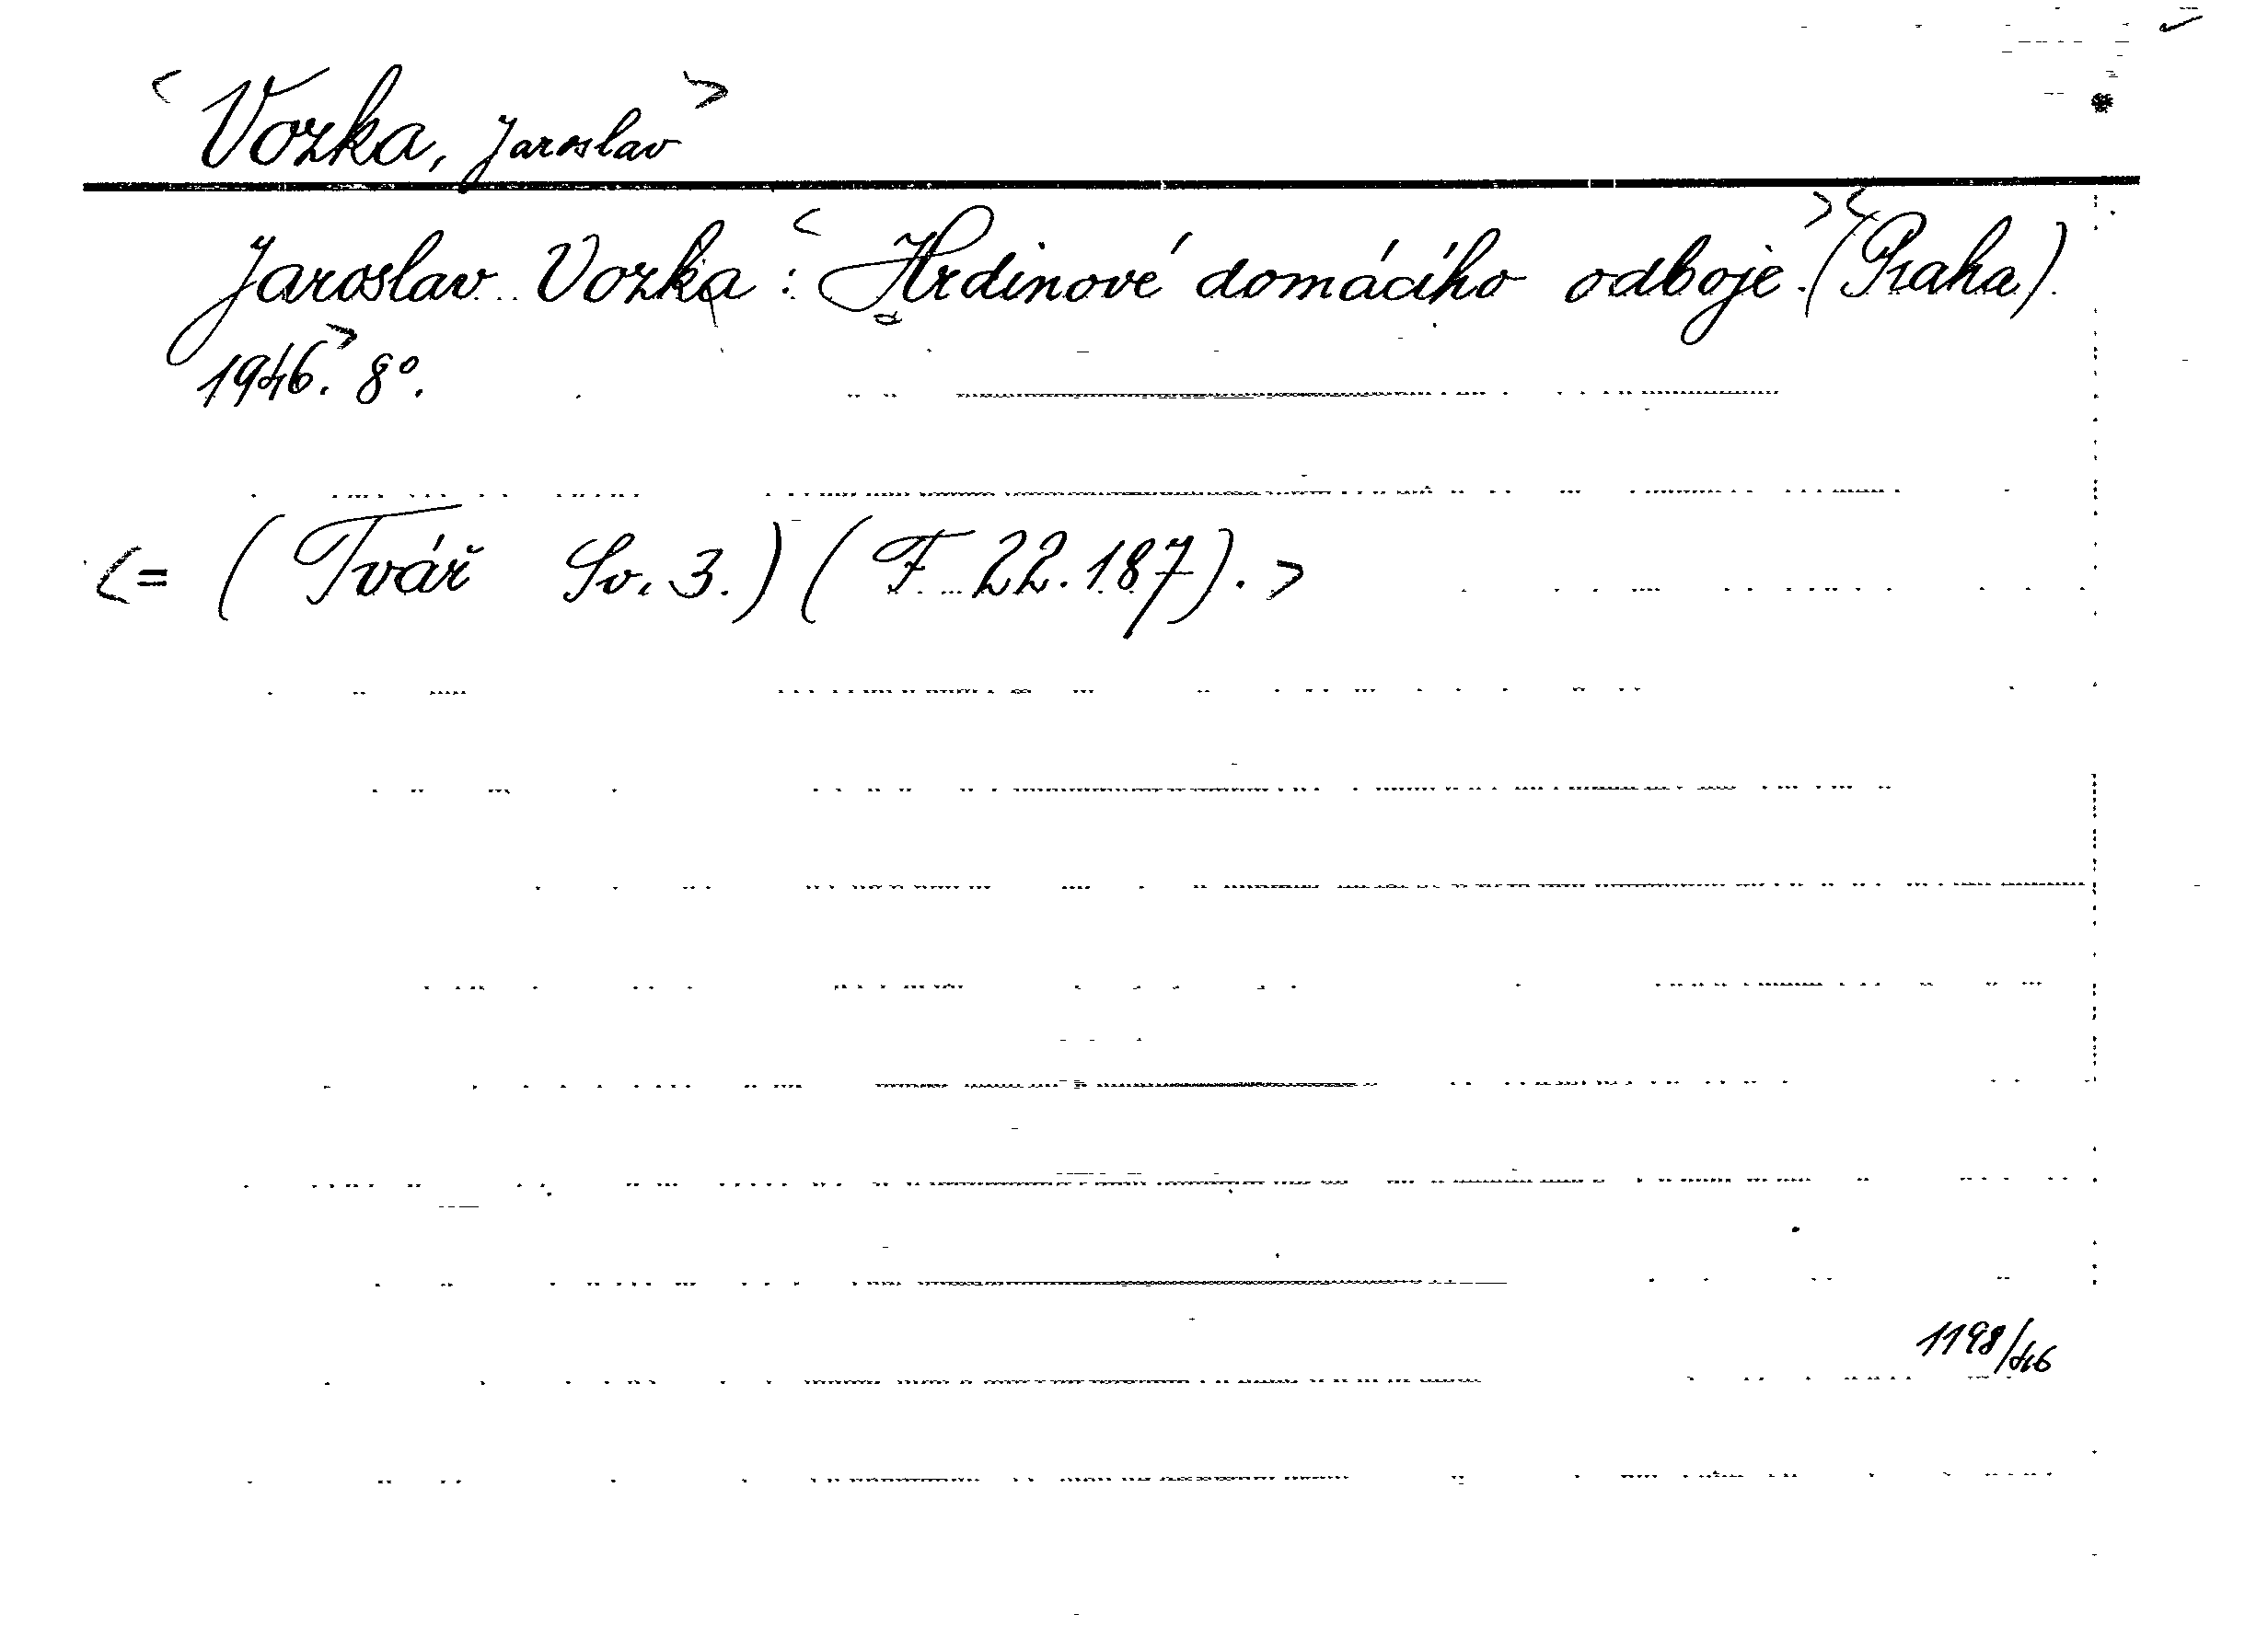 < Vozka, Jaroslav >
Jaroslav Vozka: < Hrdinové domácího odboje. > < (Praha)
1946. > 8°.
< = (Tvář Sv. 3.) (F 22.187). >
1198/46